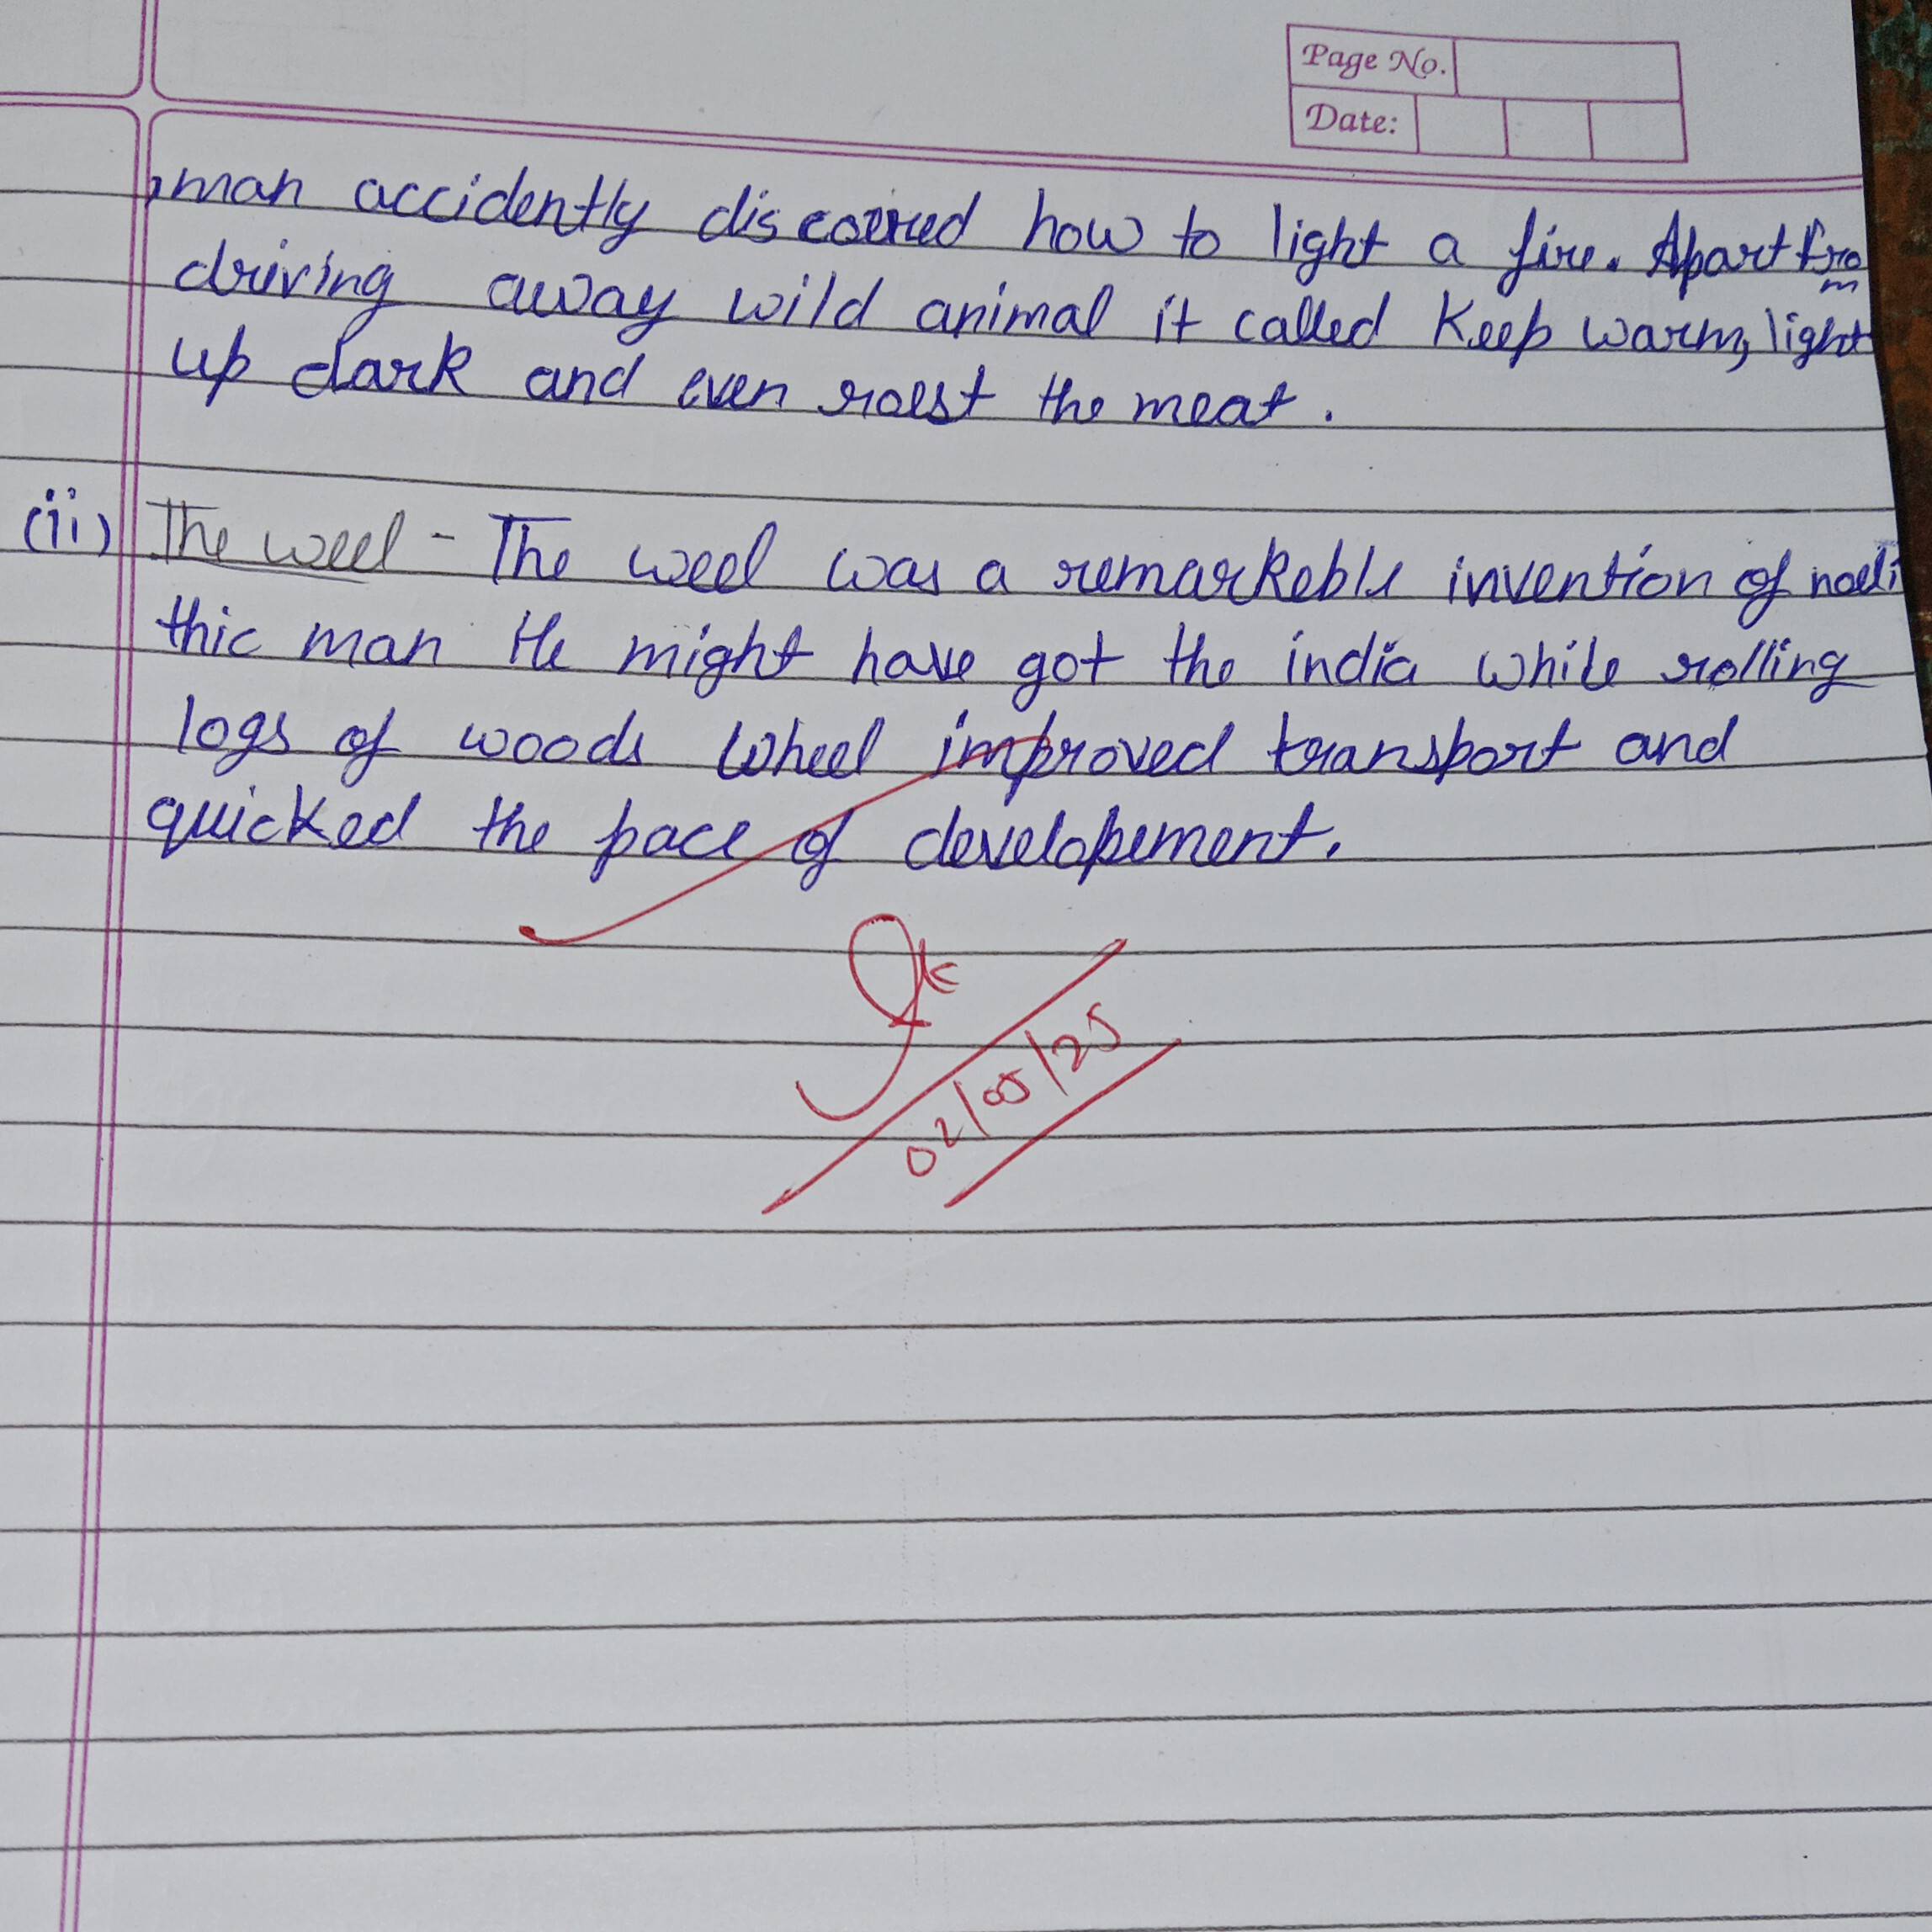 Page No.
Date:
man accidently discovered how to light a fire. Apart from
driving away wild animal it called Keep warm, light
up dark and even roest the meat.
(ii) The weel - The weel was a remarkeble invention of noeli
thic man He might have got the india while rolling
logs of woods wheel improved transport and
quicked the pace of developement.
02/05/25